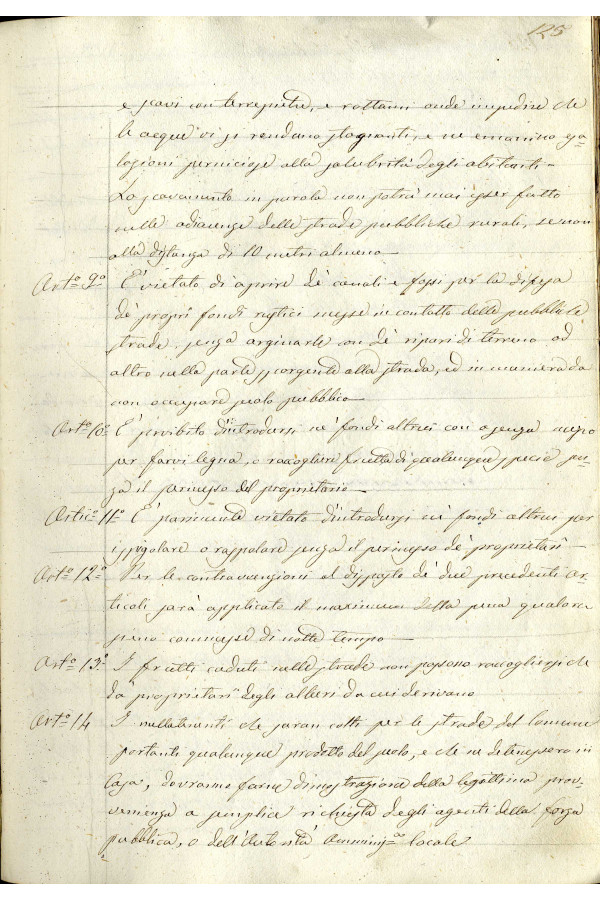 125
e scavi con terrepietre, e rottami onde impedire che
le acque vi si rendano stagnanti, e ne emanino esa-
lazioni perniciose alla salubrità degli abitanti -
Lo scavamento in parola non potrà mai esser fatto
nelle adiacenze delle strade pubbliche rurali, se non
alla distanza di 10 metri almeno -
Art.º 9º È vietato di aprire de' canali e fossi per la difesa
de' propri fondi rustici messe in contatto delle pubbliche
strade, senza arginarle con de' ripari di terreno od
altro nella parte sporgente alla strada, ed in maniera da
non occupare suolo pubblico -
Art.º 10º È proibito d'introdursi ne' fondi altrui con o senza mezzo
per farvi legna, o raccogliere frutta di qualunque specie sen-
za il permesso del proprietario -
Artic.º 11º È parimente vietato d'introdursi ne' fondi altrui per
ispigolare o raspolare senza il permesso de' proprietari -
Art.º 12º Per le contravvenzioni al disposto de' due precedenti ar-
ticoli sarà applicato il maximum della pena qualora
siano commesse di notte tempo -
Art.º 13º I frutti caduti nelle strade non possono raccogliersi che
da proprietari degli alberi da cui derivano
Art.º 14 I che saran colti per le strade del Comune
portanti qualunque prodotto del suolo, e che ne detenessero in
Casa, dovranno farne dimostrazione della legittima prov-
venienza a semplice richiesta degli agenti della forza
pubblica, o dell'Autorità Amminis.va locale